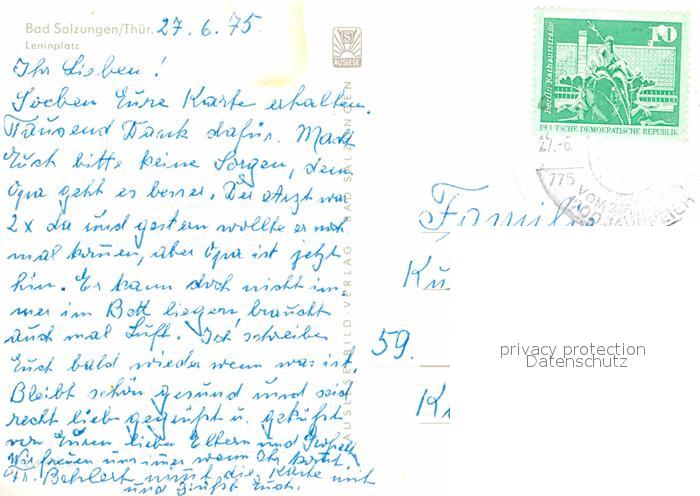 Bad Salzungen/Thür. 27.6.75
Leninplatz
Ihr Lieben!
Soeben Eure Karte erhalten.
Tausend Dank dafür. Macht
Euch bitte keine Sorgen, denn
Opa geht es besser. Der Arzt war
2x da und gestern wollte er noch
mal kommen, aber Opa ist jetzt
hin. Er kann doch nicht im-
mer im Bett liegen, braucht
auch mal Luft. Ich schreibe
Euch bald wieder wenn was ist.
Bleibt schön gesund und seid
recht lieb gegrüßt u. geküßt
von Euren lieben Eltern und
Wir freuen uns immer wenn Ihr
Fr. Behlert nimmt die Karte mit
und grüßt Euch.
AUSLESE
AUSLESE-BILD-VERLAG BAD SALZUNGEN
Berlin, Rathausstraße
10
DEUTSCHE DEMOKRATISCHE REPUBLIK
27.-6.
775
VOM
Familie
Ku
59.
K
privacy protection
Datenschutz